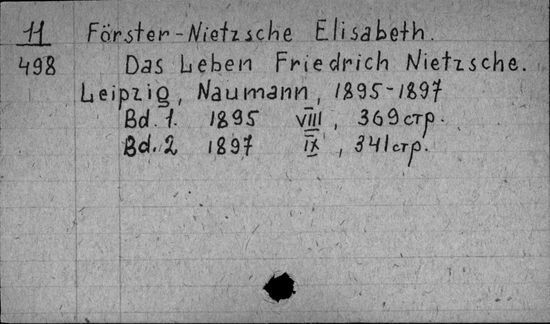 11 Förster-Nietzsche Elisabeth.
498 Das Leben Friedrich Nietzsche.
Leipzig, Naumann, 1895-1897
Bd. 1. 1895 VIII, 369 стр.
Bd. 2 1897 IX, 341 стр.